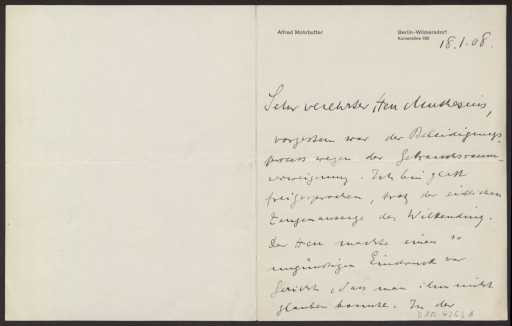 Alfred Mohrbutter
Berlin-Wilmersdorf
18.1.08.
Sehr verehrter Herr Muthesius,
vorgestern war der Beleidigungs-
prozess wegen der
. Ich bin
freigesprochen, trotz der eidlichen
Zeugenaussage des
Der Herr machte einen so
ungünstigen Eindruck vor
Gericht, dass man ihm nicht
glauben konnte. In der